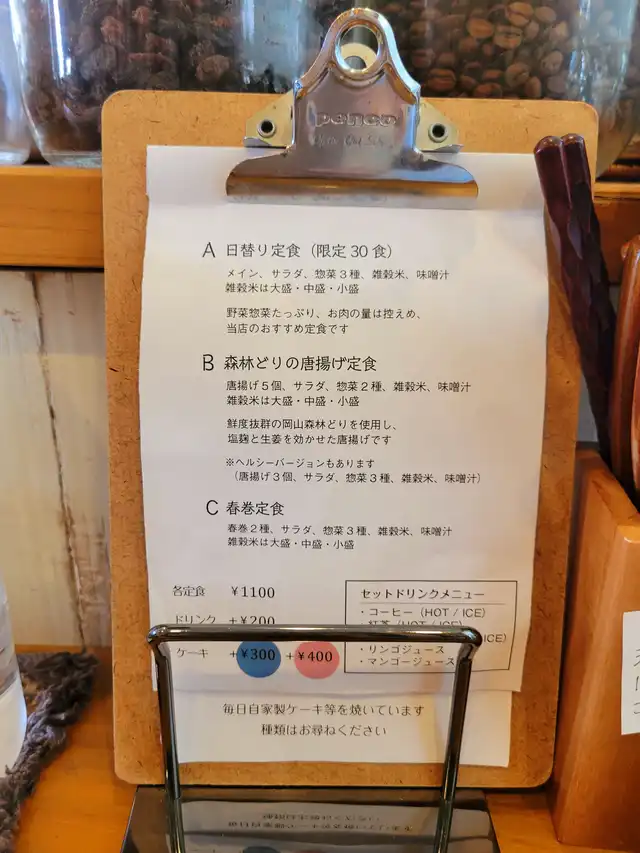 penco
A 日替り定食（限定30食）
メイン、サラダ、惣菜３種、雑穀米、味噌汁
雑穀米は大盛・中盛・小盛
野菜惣菜たっぷり、お肉の量は控えめ、
当店のおすすめ定食です
B 森林どりの唐揚げ定食
唐揚げ５個、サラダ、惣菜２種、雑穀米、味噌汁
雑穀米は大盛・中盛・小盛
鮮度抜群の岡山森林どりを使用し、
塩麹と生姜を効かせた唐揚げです
※ヘルシーバージョンもあります
（唐揚げ３個、サラダ、惣菜３種、雑穀米、味噌汁）
C 春巻定食
春巻２種、サラダ、惣菜３種、雑穀米、味噌汁
雑穀米は大盛・中盛・小盛
各定食 ￥1100
ドリンク +￥200
ケーキ +￥300 +￥400
セットドリンクメニュー
・コーヒー（HOT / ICE）
・紅茶（HOT / ICE）
ICE）
・リンゴジュース
・マンゴージュース
毎日自家製ケーキ等を焼いています
種類はお尋ねください